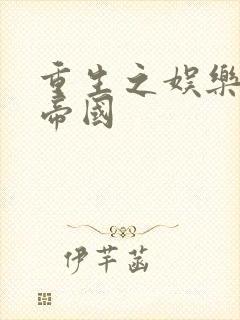 重生之娛樂
帝國
伊芊菡